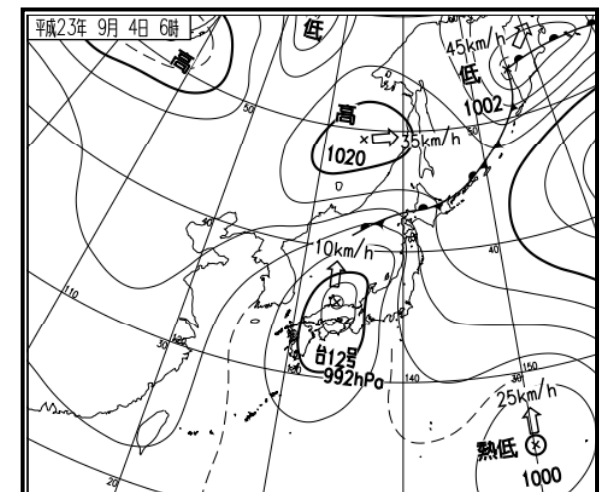 平成23年 9月 4日 6時
低
高
45km/h
低
1002
高
35km/h
1020
50
50
40
10km/h
40
110
120
30
台12号
992hPa
130
140
150
30
25km/h
熱低
1000
20